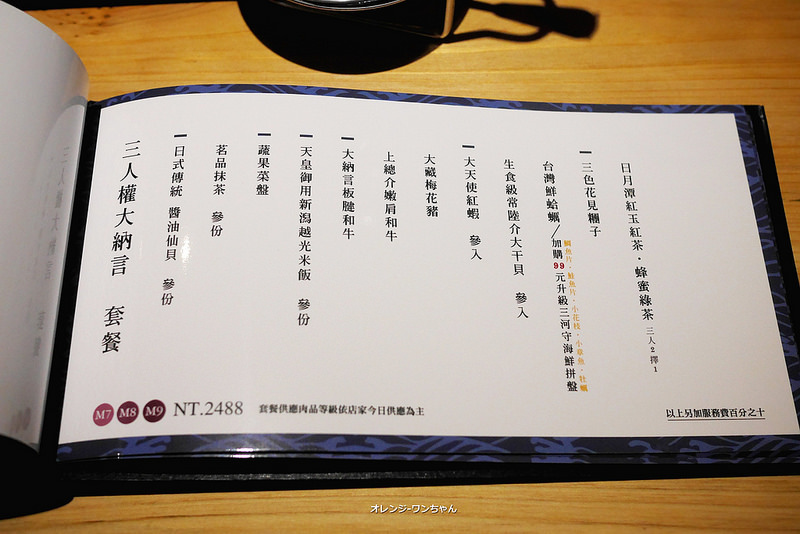 三人權大納言 套餐
日式傳統 醬油仙貝 參份
茗品抹茶 參份
蔬果菜盤
天皇御用新潟越光米飯 參份
大納言板腱和牛
上總介嫩肩和牛
大藏梅花豬
大天使紅蝦 參入
生食級常陸介大干貝 參入
台灣鮮蛤蠣／加購99元升級三河守海鮮拼盤
鯛魚片．鮭魚片．小花枝．小章魚．牡蠣
三色花見糰子
日月潭紅玉紅茶．蜂蜜綠茶 三人2擇1
M7 M8 M9 NT.2488 套餐供應肉品等級依店家今日供應為主
以上另加服務費百分之十
オレンジ-ワンちゃん